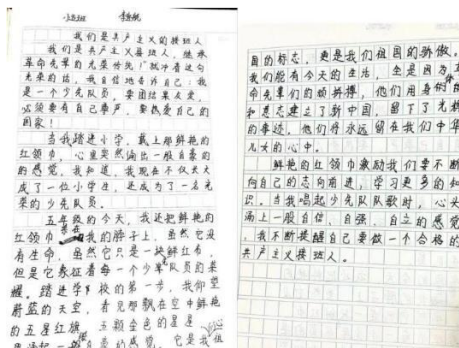 我们是共产主义的接班人
我们是共产主义接班人，继承
革命先辈的光荣传统！"哼着这句
光荣的话，我自信地告诉自己：我
是一个少先队员，要团结友爱，
必须要有自己尊严，要热爱自己的
国家！
当我踏进小学，戴上那鲜艳的
红领巾，心里突然涌出一股自豪的
的感觉，我知道，我现在不仅仅大
成了一位小学生，还成为了一名光
荣的少先队员。
五年级的今天，我还把鲜艳的
红领巾系在我的脖子上，虽然它没
有生命，虽然它只是一块鲜红布，
但是它象征着每一个少先队员的荣
耀。踏进学校的第一步，我仰望
蔚蓝的天空，看见那飘在空中鲜艳
的五星红旗，五颗金色的星星
自豪的感觉，它是我祖
国的标志，更是我们祖国的骄傲。
我们能有今天的生活，全是因为
命先辈们的顽拼搏，他们用身体
和意志建立了新中国，留下了光辉
的事迹，他们将永远留在我们中华
儿女的心中。
鲜艳的红领巾激励我们要不断
向自己的志向前进，学习更多的知
识。当我唱起少先队队歌时，心头
涌上一股自信、自强、自立的感觉
，我不断提醒自己要做一个合格的
共产主义接班人。